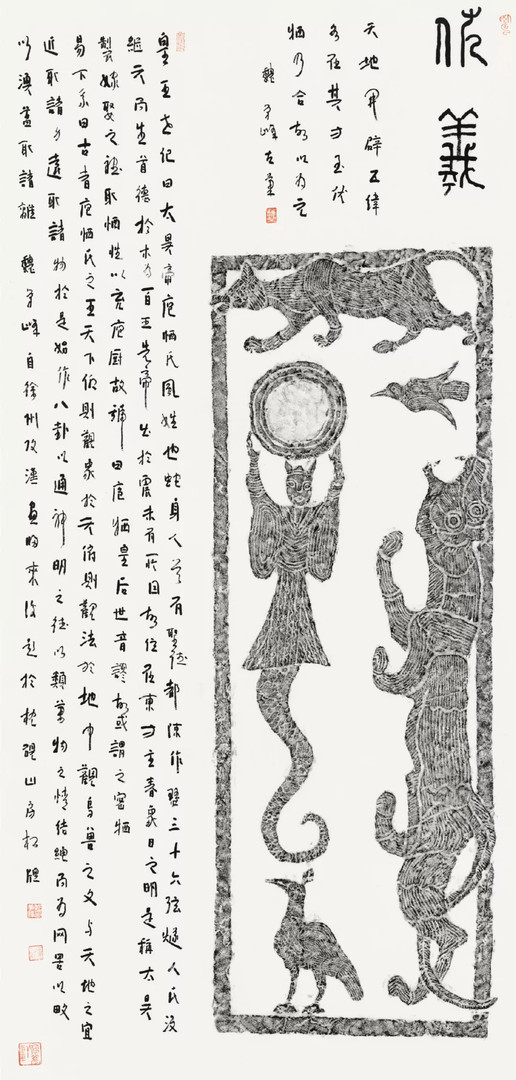 伏羲
天地开辟五緯
各在其方至伏
牺乃合故以为元
魏学峰左筆
皇王世紀曰太昊帝庖牺氏風姓也蛇身人首有聖德都陳作瑟三十六弦燧人氏没
繼天而生首德於木为百王先帝出於震未有所因故位在東方主春象日之明是稱太昊
製嫁娶之禮取牺牲以充庖厨故號曰庖牺皇后世音謬故或謂之宓牺
易下系曰古者庖牺氏之王天下仰則觀象於天俯則觀法於地中觀鳥獸之文与天地之宜
近取諸身遠取諸物於是始作八卦以通神明之德以類萬物之情結繩而为网罟以畋
以漁蓋取諸離魏学峰自徐州攷漢画歸來後題於山房松牖